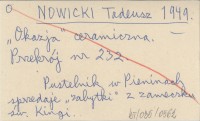 NOWICKI Tadeusz 1949.
„Okazja" ceramiczna.
Przekrój nr 232.
Pustelnik w Pieninach
sprzedaje „zabytki" z zameczku
św. Kingi.